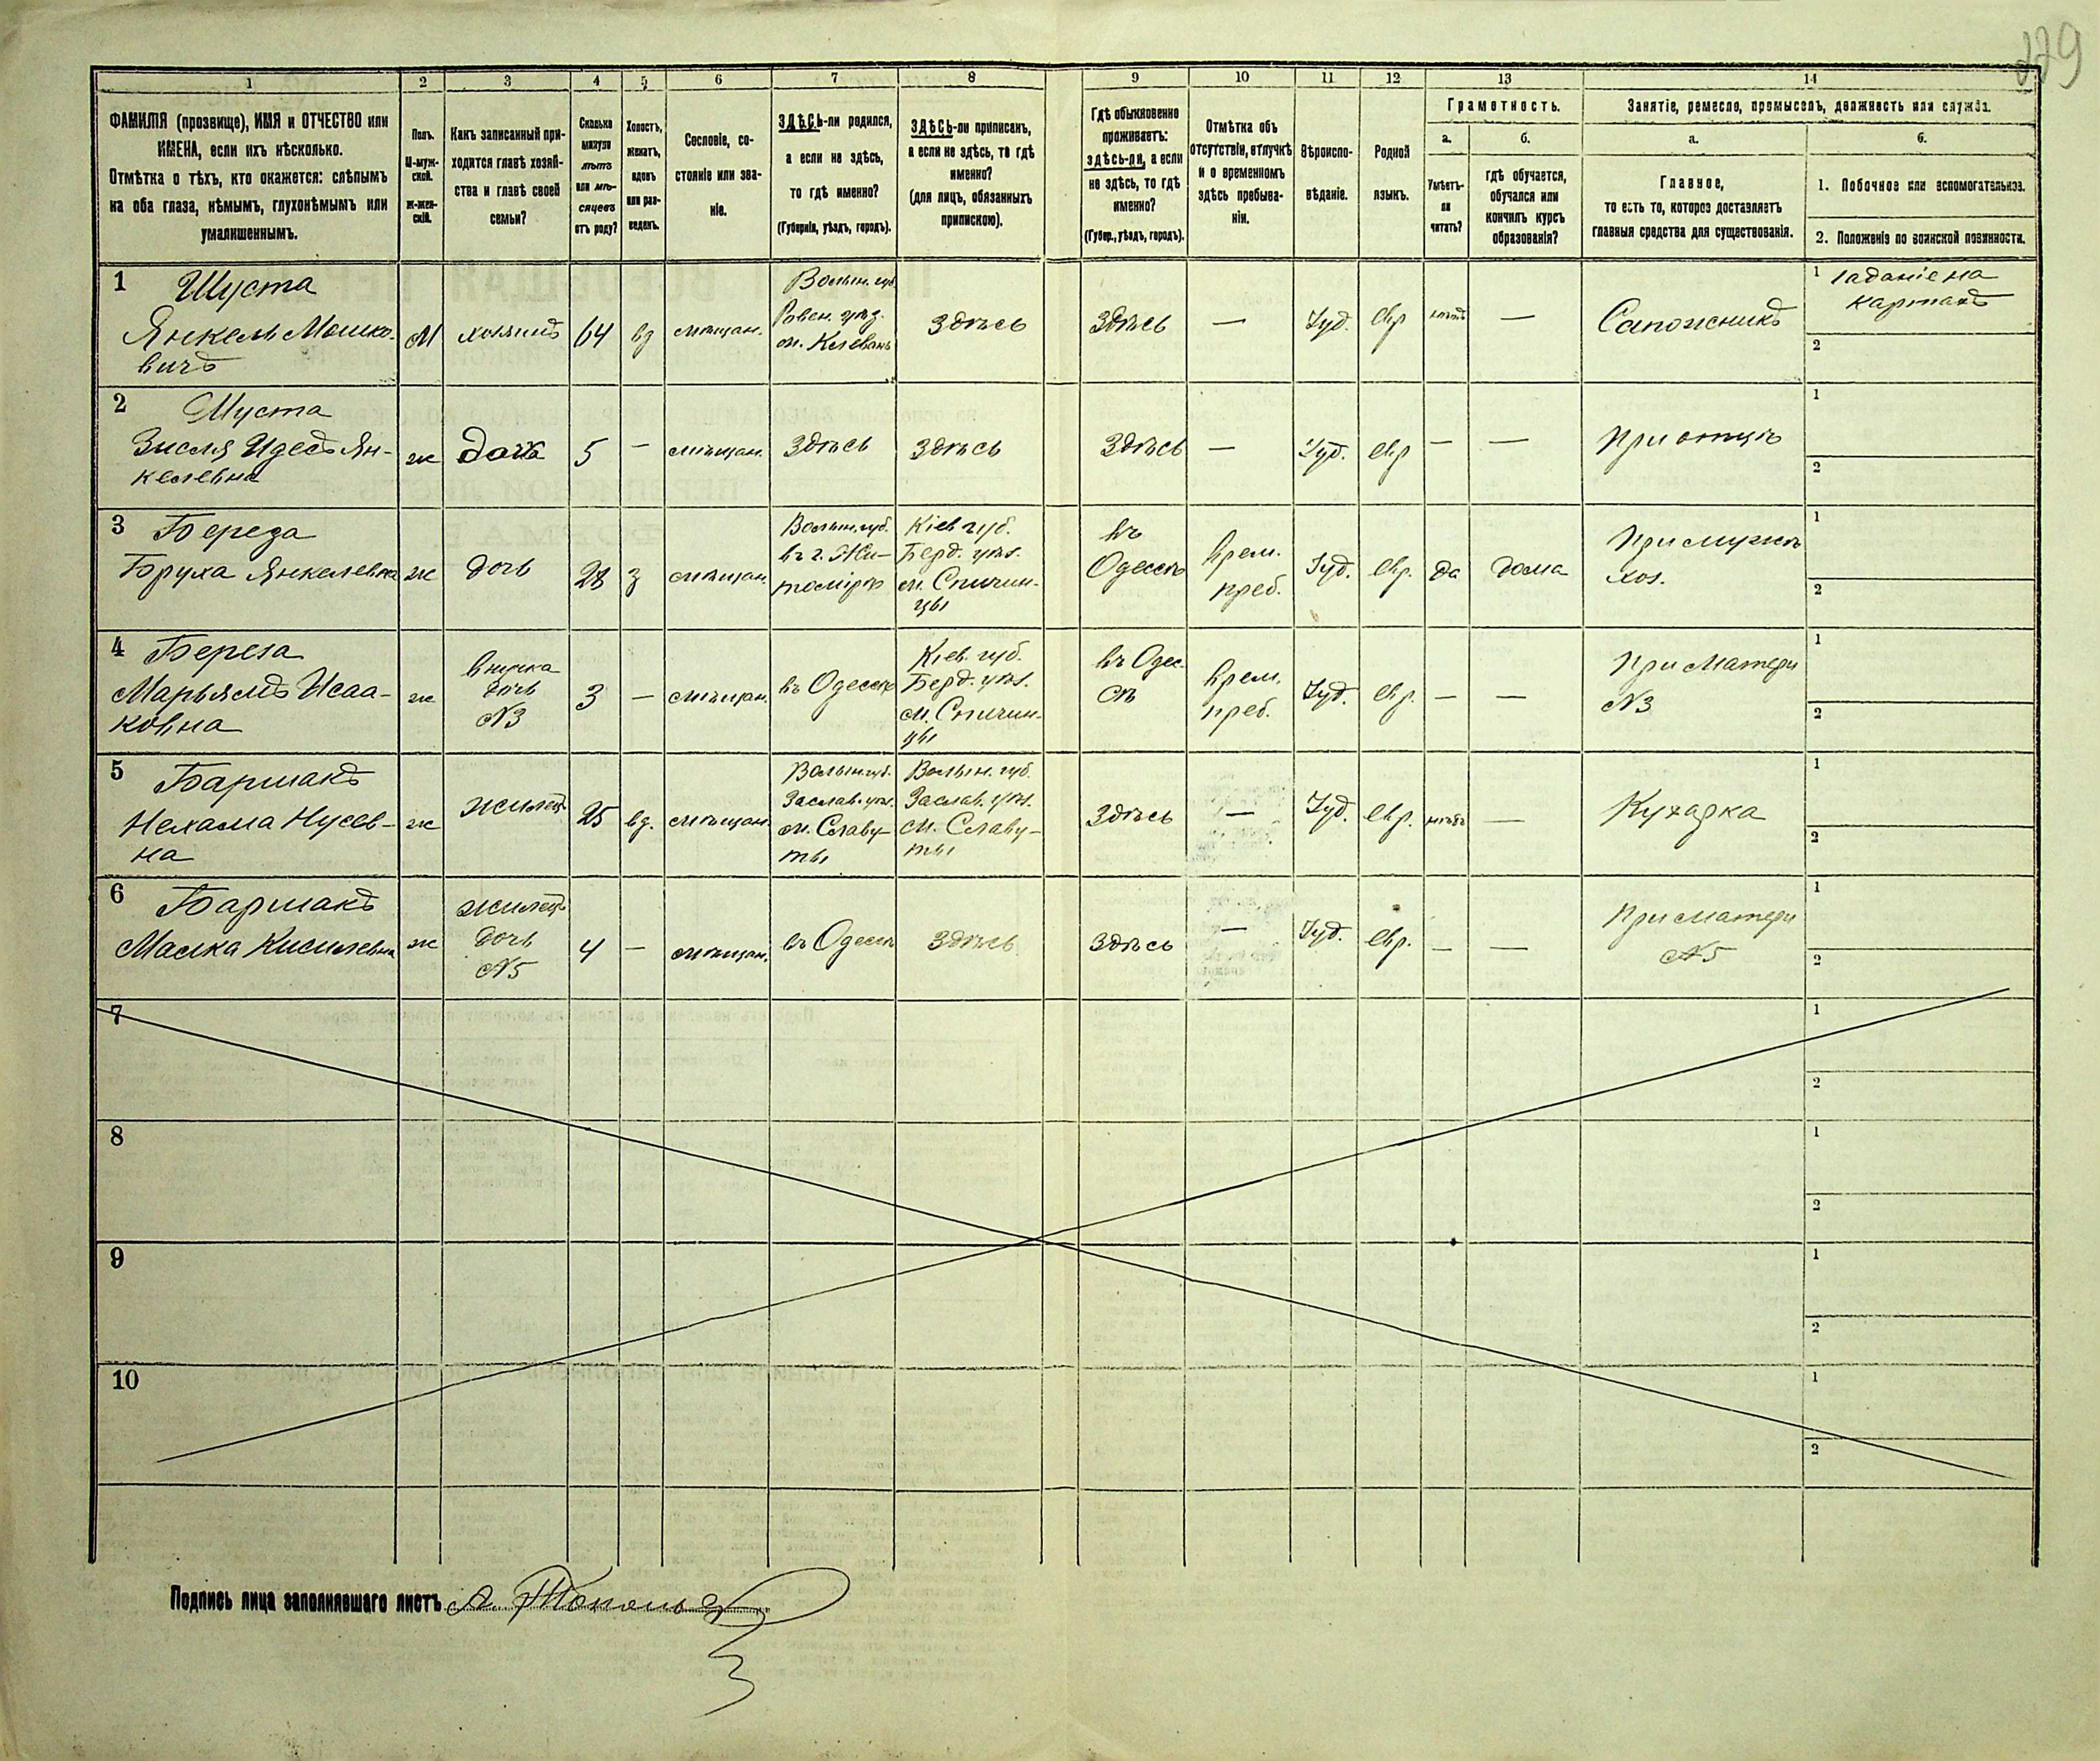 229
1
2
3
4
5
6
7
8
9
10
11
12
13
14
ФАМИЛІЯ (прозвище), ИМЯ и ОТЧЕСТВО или
ИМЕНА, если ихъ нѣсколько.
Отмѣтка о тѣхъ, кто окажется: слѣпымъ
на оба глаза, нѣмымъ, глухонѣмымъ или
умалишеннымъ.
Полъ.
М-муж-
ской.
ж-жен-
скій.
Какъ записанный при-
ходится главѣ хозяй-
ства и главѣ своей
семьи?
Сколько
минуло
лѣтъ
или мѣ-
сяцевъ
отъ роду?
Холостъ,
женатъ,
вдовъ
или раз-
веденъ.
Сословіе, со-
стояніе или зва-
ніе.
ЗДѢСЬ-ли родился,
а если не здѣсь,
то гдѣ именно?
(Губернія, уѣздъ, городъ).
ЗДѢСЬ-ли приписанъ,
а если не здѣсь, то гдѣ
именно?
(для лицъ, обязанныхъ
припискою).
Гдѣ обыкновенно
проживаетъ:
здѣсь-ли, а если
не здѣсь, то гдѣ
именно?
(Губер., уѣздъ, городъ).
Отмѣтка объ
отсутствіи, отлучкѣ
и о временномъ
здѣсь пребыва-
ніи.
Вѣроиспо-
вѣданіе.
Родной
языкъ.
Грамотность.
а.
Умѣетъ-
ли
читать?
б.
гдѣ обучается,
обучался или
кончилъ курсъ
образованія?
Занятіе, ремесло, промыселъ, должность или служба.
а.
Главное,
то есть то, которое доставляетъ
главныя средства для существованія.
б.
1. Побочное или вспомогательное.
2. Положеніе по воинской повинности.
1 Шуста
Янкель Мошко-
вичъ
М
хозяинъ
64
вд
мѣщан.
Волын. губ.
Ровен. уѣзд.
м. Клевань
Здѣсь
Здѣсь
—
Іуд.
евр
нѣтъ
—
Сапожникъ
1 гаданіе на
картахъ
2
2 Шуста
Зисля Идесъ Ян-
келевна
ж
дочка
5
—
мѣщан.
Здѣсь
Здѣсь
Здѣсь
—
Іуд.
евр
—
—
При отцѣ
1
2
3 Береза
Бруха Янкелевна
ж
дочь
28
з
мѣщан.
Волын. губ.
въ г. Жи-
томірѣ
Кіев. губ.
Берд. уѣз.
м. Спичин-
цы
въ
Одессѣ
Врем.
преб.
Іуд.
евр.
да
дома
При мужѣ
хоз.
1
2
4 Береза
Марьямъ Исаа-
ковна
ж
внучка
дочь
№3
3
—
мѣщан.
въ Одессѣ
Кіев. губ.
Берд. уѣз.
м. Спичин-
цы
въ Одес-
сѣ
Врем.
преб.
Іуд.
евр.
—
—
При матери
№3
1
2
5 Баршакъ
Нехама Нусев-
на
ж
жилец
25
вд.
мѣщан.
Волын. губ.
Заслав. уѣз.
м. Славу-
ты
Волын. губ.
Заслав. уѣз.
м. Славу-
ты
Здѣсь
—
Іуд.
евр.
нѣтъ
—
Кухарка
1
2
6 Баршакъ
Малка Кисилевна
ж
жилец
дочь
№5
4
—
мѣщан.
въ Одессѣ
Здѣсь
Здѣсь
—
Іуд.
евр.
—
—
При матери
№5
1
2
7
1
2
8
1
2
9
1
2
10
1
2
Подпись лица заполнявшаго листъ